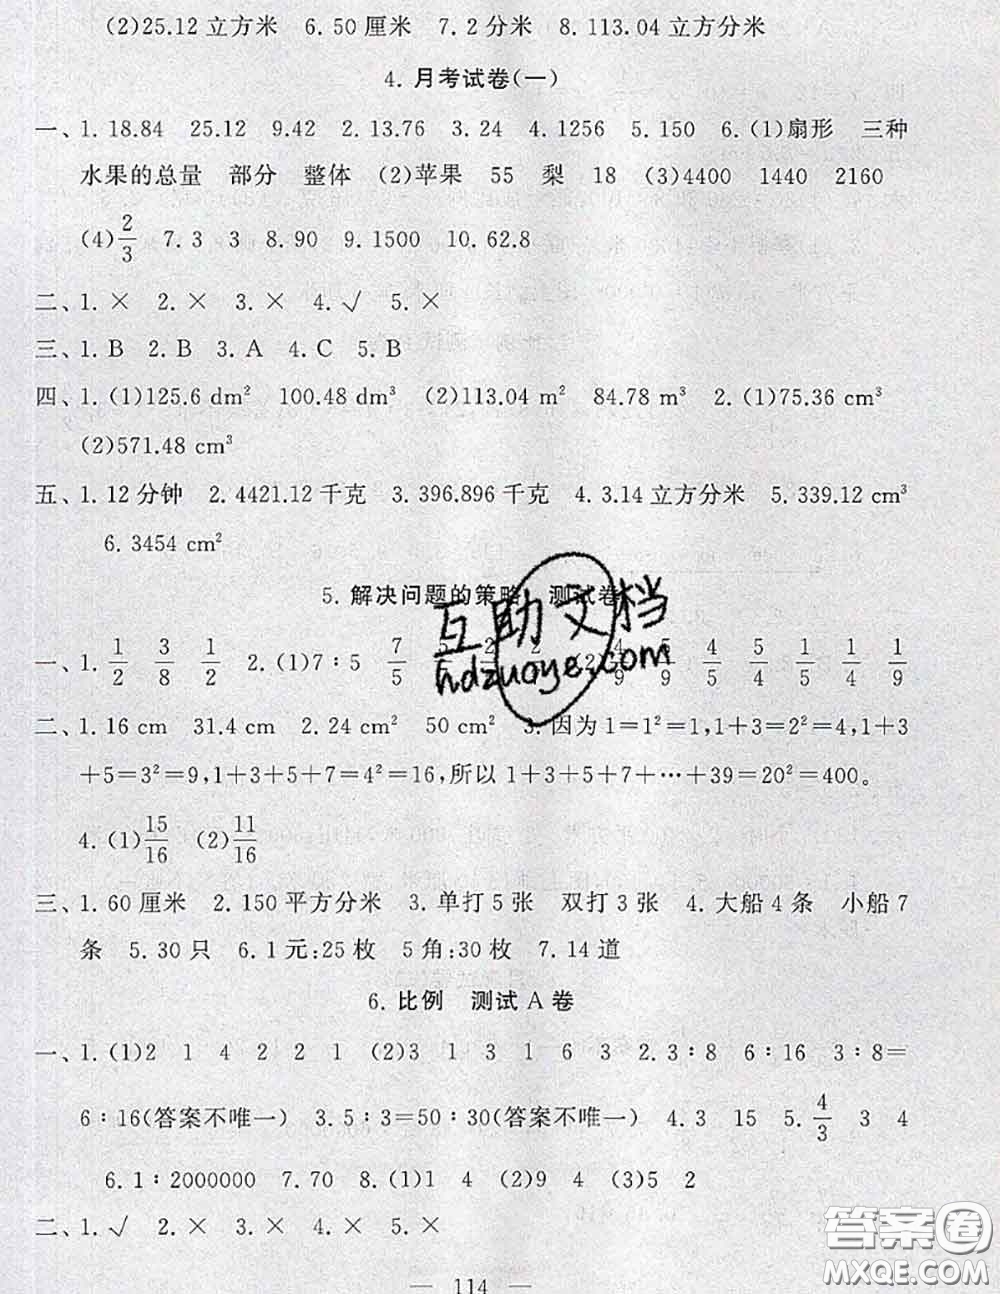 (2)25.12立方米 6.50厘米 7.2分米 8.113.04立方分米
4.月考试卷(一)
一、1.18.84 25.12 9.42 2.13.76 3.24 4.1256 5.150 6.(1)扇形 三种
水果的总量 部分 整体 (2)苹果 55 梨 18 (3)4400 1440 2160
(4)2/3 7.3 3 8.90 9.1500 10.62.8
二、1.× 2.× 3.× 4.√ 5.×
三、1.B 2.B 3.A 4.C 5.B
四、1.(1)125.6 dm² 100.48 dm³ (2)113.04 m² 84.78 m³ 2.(1)75.36 cm³
(2)571.48 cm³
五、1.12分钟 2.4421.12千克 3.396.896千克 4.3.14立方分米 5.339.12 cm³
6.3454 cm²
5.解决问题的策略 测试卷
一、1.1/2 3/8 1/2 2.(1)7∶5 7/5 (2)4/9 4/5 5/4 1/4 1/9
二、1.16 cm 31.4 cm 2.24 cm² 50 cm² 3.因为1=1²=1,1+3=2²=4,1+3
+5=3²=9,1+3+5+7=4²=16,所以1+3+5+7+⋯+39=20²=400。
4.(1)15/16 (2)11/16
三、1.60厘米 2.150平方分米 3.单打5张 双打3张 4.大船4条 小船7
条 5.30只 6.1元:25枚 5角:30枚 7.14道
6.比例 测试A卷
一、1.(1)2 1 4 2 2 1 (2)3 1 3 1 6 3 2.3∶8 6∶16 3∶8=
6∶16(答案不唯一) 3.5∶3=50∶30(答案不唯一) 4.3 15 5.4/3 3 4
6.1∶2000000 7.70 8.(1)1 4 (2)9 4 (3)5 2
二、1.√ 2.× 3.× 4.× 5.×
— 114 —
互助文档
hdzuoye.com
答案圈
MXQE.COM